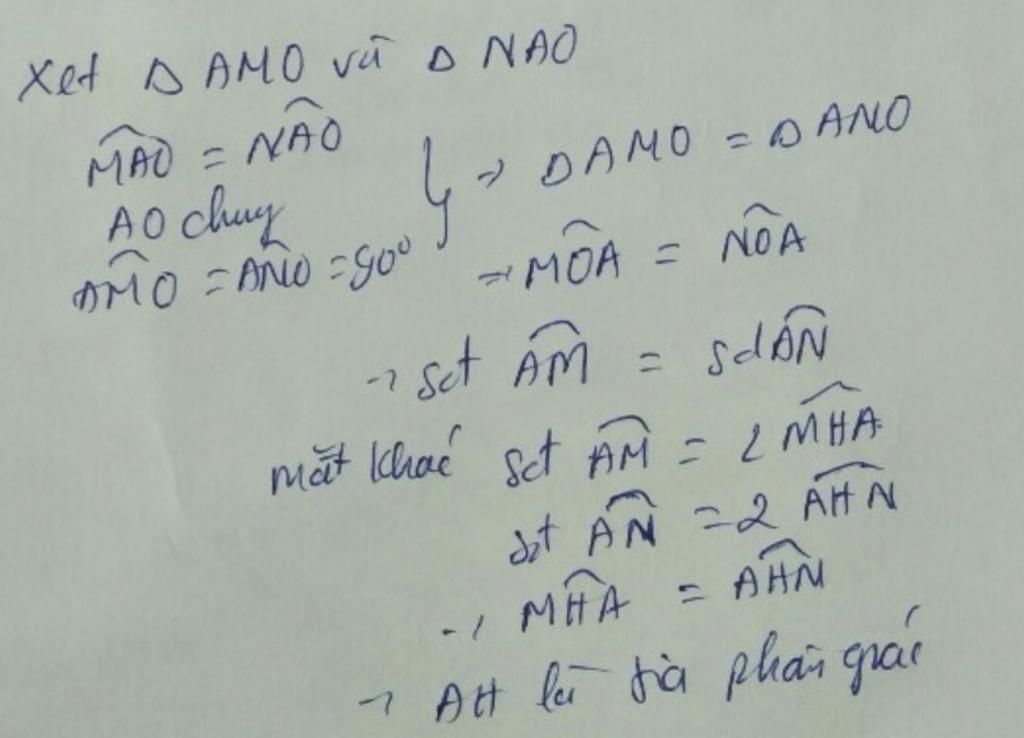 Xét Δ AMO và Δ NAO
MAO = NAO
AO chung } → Δ AMO = Δ ANO
AMO = ANO = 90° → MOA = NOA
→ sđ AM = sđ AN
mặt khác sđ AM = 2 MHA
sđ AN = 2 AHN
→ MHA = AHN
→ AH là tia phân giác